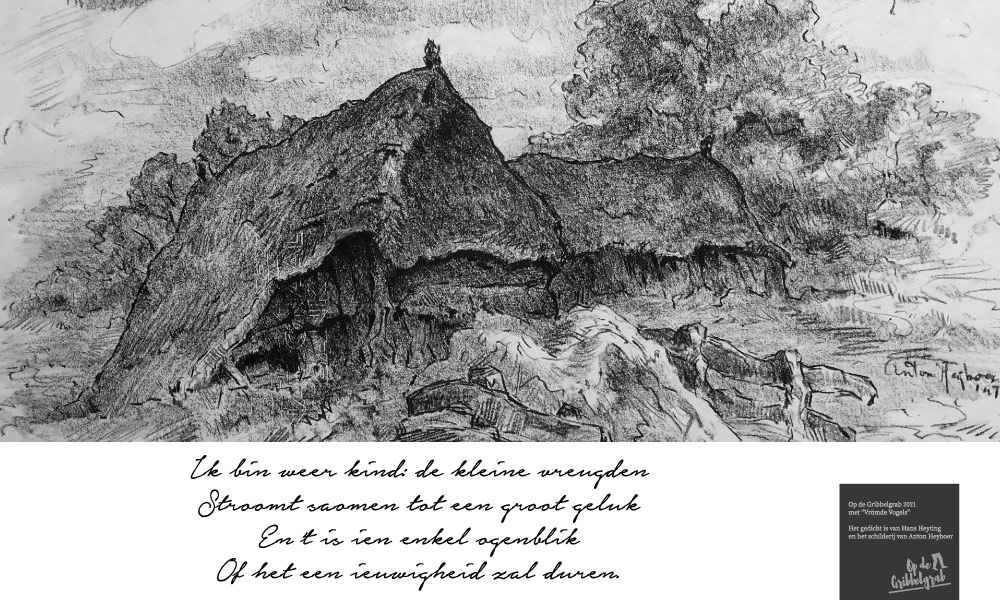 Anton Heyboer
Ik bin weer kind: de kleine vreugden
Stroomt saomen tot een groot geluk
En 't is ien enkel ogenblik
Of het een ieuwigheid zal duren.
Op de Gribbelgrab 2021
met "Vrömde Vogels"
Het gedicht is van Hans Heyting
en het schilderij van Anton Heyboer
Op de
Gribbelgrab